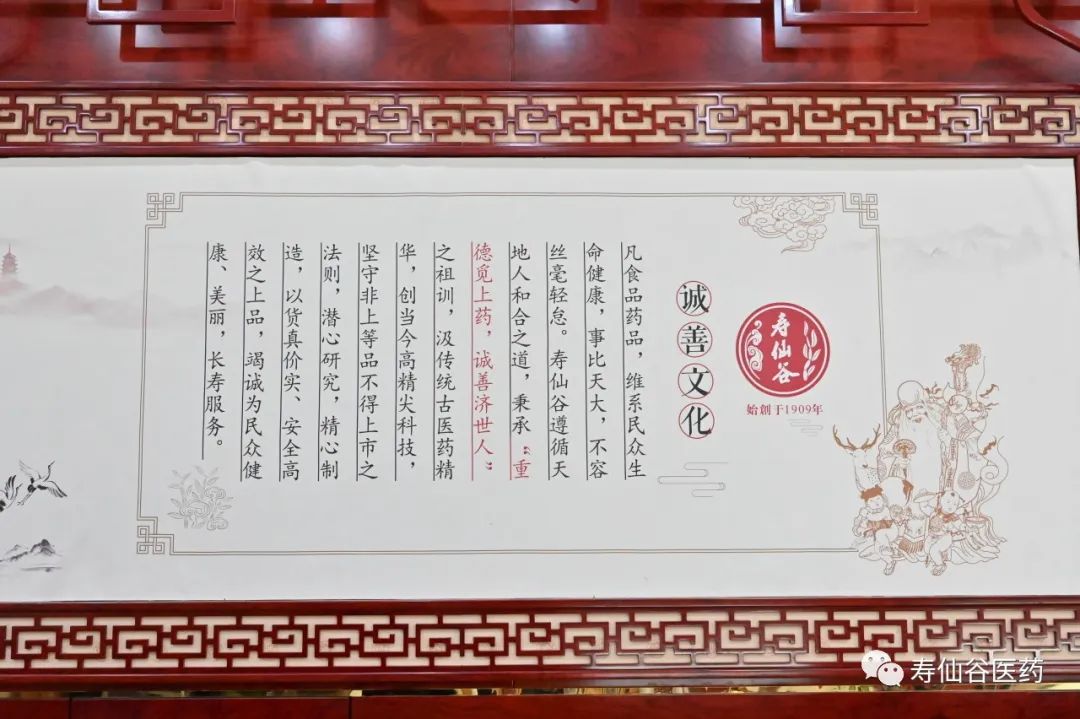 寿仙谷
始創于1909年
诚善文化
凡食品药品，维系民众生
命健康，事比天大，不容
丝毫轻怠。寿仙谷遵循天
地人和合之道，秉承“重
德觅上药，诚善济世人”
之祖训，汲传统古医药精
华，创当今高精尖科技，
坚守非上等品不得上市之
法则，潜心研究，精心制
造，以货真价实、安全高
效之上品，竭诚为民众健
康、美丽，长寿服务。
寿仙谷医药